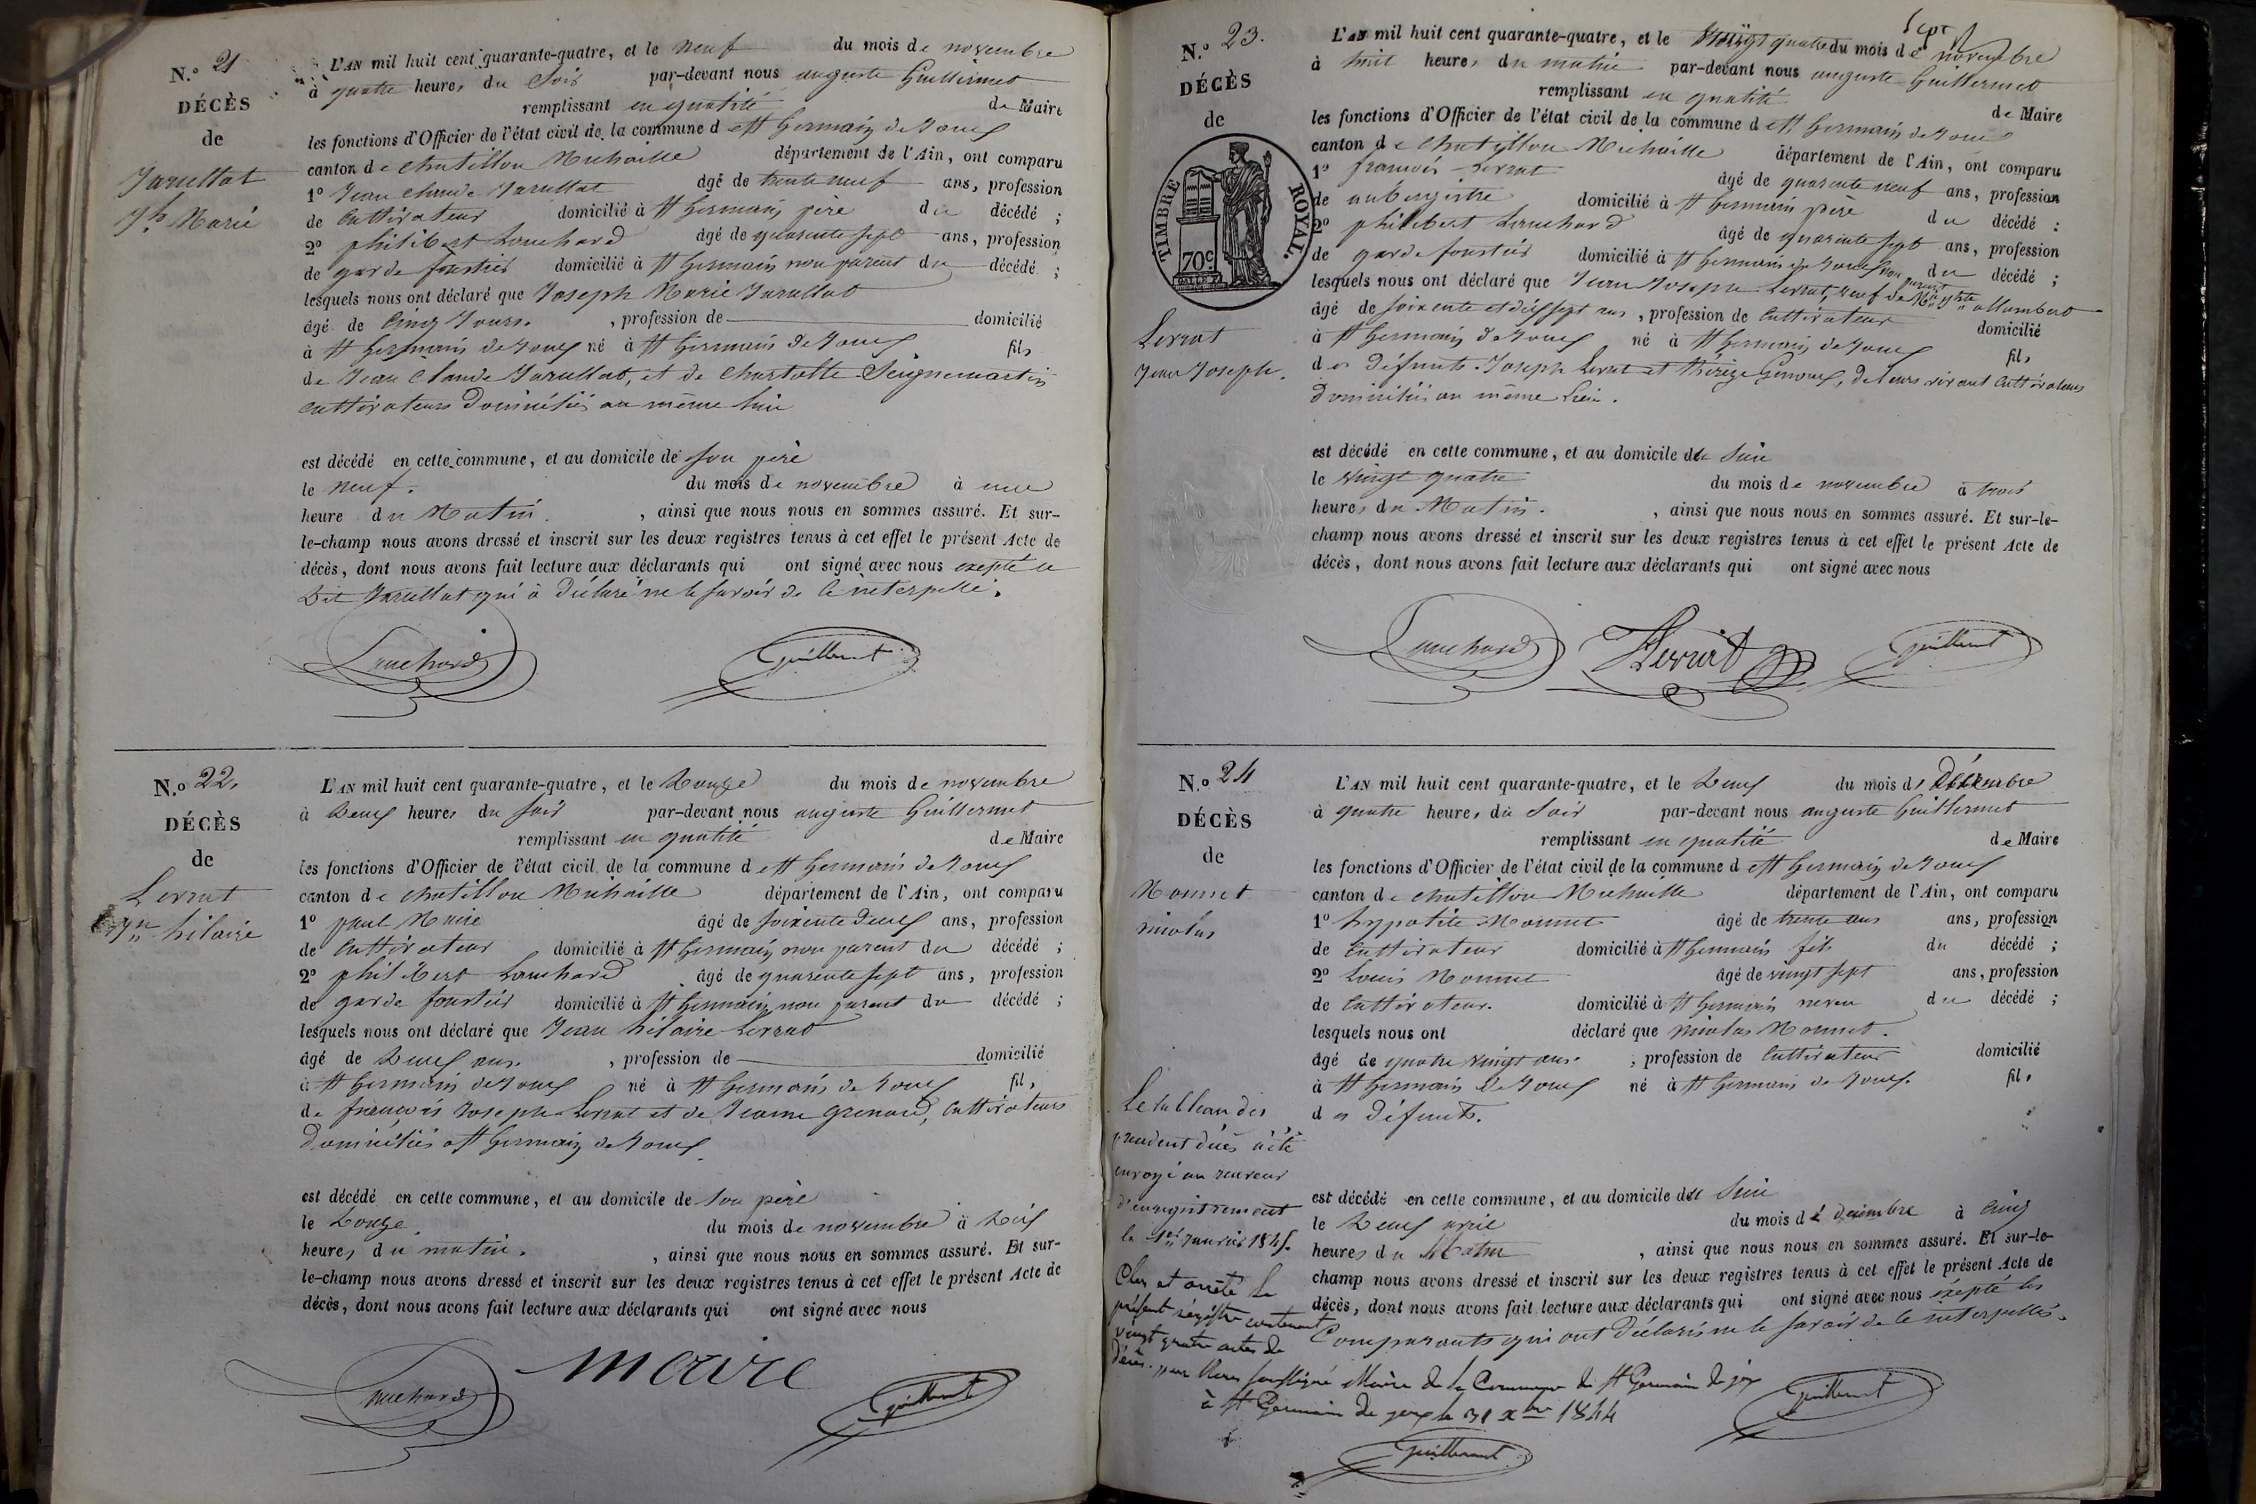 N.º 21
DÉCÈS
de
Jarullat
Jh Marie
L'AN mil huit cent quarante-quatre, et le neuf du mois de novembre
à quatre heures du Soir par-devant nous auguste Guillermet
remplissant en qualité de Maire
les fonctions d'Officier de l'état civil de la commune de St Germain de Joux
canton de Chatillon Michaille département de l'Ain, ont comparu
1º Jean Claude Jarullat âgé de trente neuf ans, profession
de Cultivateur domicilié à St Germain père du décédé ;
2º philibert Louchard âgé de quarente sept ans, profession
de garde forestier domicilié à St Germain non parent du décédé ;
lesquels nous ont déclaré que Joseph Marie Jarullat
âgé de Cinq Jours. , profession de domicilié
à St Germain de Joux né à St Germain de Joux fils
de Jean Claude Jarullat, et de Charlotte Seignemartin
cultivateurs Domiciliés au même lieu
est décédé en cette commune, et au domicile de son père
le neuf. du mois de novembre à une
heure du Matin. , ainsi que nous nous en sommes assuré. Et sur-
le-champ nous avons dressé et inscrit sur les deux registres tenus à cet effet le présent Acte de
décès, dont nous avons fait lecture aux déclarants qui ont signé avec nous exepté le
Dit Jarullat qui à Déclaré ne le savoir de ce interpellé.
Louchard Guillermet
N.º 22.
DÉCÈS
de
Levrat
Jn hilaire
L'AN mil huit cent quarante-quatre, et le Douze du mois de novembre
à Deux heures du soir par-devant nous auguste Guillermet
remplissant en qualité de Maire
les fonctions d'Officier de l'état civil de la commune de St Germain de Joux
canton de Chatillon Michaille département de l'Ain, ont comparu
1º paul Maire âgé de soixente Deux ans, profession
de Cultivateur domicilié à St Germain non parent du décédé ;
2º philibert Louchard âgé de quarente sept ans, profession
de garde forestier domicilié à St Germain non parent du décédé ;
lesquels nous ont déclaré que Jean hilaire Levrat
âgé de Deux ans. , profession de domicilié
à St Germain de Joux né à St Germain de Joux fils
de françois Joseph Levrat et de Jeanne Grenard, Cultivateurs
Domiciliés a St Germain de Joux
est décédé en cette commune, et au domicile de son père
le Douze du mois de novembre à Dix
heures du matin. , ainsi que nous nous en sommes assuré. Et sur-
le-champ nous avons dressé et inscrit sur les deux registres tenus à cet effet le présent Acte de
décès, dont nous avons fait lecture aux déclarants qui ont signé avec nous
Louchard Maire Guillermet
N.º 23.
DÉCÈS
de
TIMBRE ROYAL.
70c
Levrat
Jean Joseph.
L'AN mil huit cent quarante-quatre, et le vingt quatre du mois de novembre
à huit heures du matin par-devant nous auguste Guillermet
remplissant en qualité de Maire
les fonctions d'Officier de l'état civil de la commune de St Germain de Joux
canton de Chatillon Michaille département de l'Ain, ont comparu
1º françois Levrat âgé de quarente neuf ans, profession
de aubergiste domicilié à St Germain père du décédé ;
2º philibert Louchard âgé de quarente sept ans, profession
de garde forestier domicilié à St Germain de Joux non parent du décédé ;
lesquels nous ont déclaré que Jean Joseph Levrat, veuf de allombert
âgé de soixente et dix sept ans , profession de Cultivateur domicilié
à St Germain de Joux né à St Germain de Joux fils
des Défunts Joseph Levrat et thérèze , de leurs vivant Cultivateurs
Domiciliés au même Lieu.
est décédé en cette commune, et au domicile de sien
le vingt quatre du mois de novembre à trois
heures du Matin. , ainsi que nous nous en sommes assuré. Et sur-le-
champ nous avons dressé et inscrit sur les deux registres tenus à cet effet le présent Acte de
décès, dont nous avons fait lecture aux déclarants qui ont signé avec nous
Louchard Levrat Guillermet
N.º 24
DÉCÈS
de
Monnet
nicolas
L'AN mil huit cent quarante-quatre, et le Deux du mois de Décembre
à quatre heures du Soir par-devant nous auguste Guillermet
remplissant en qualité de Maire
les fonctions d'Officier de l'état civil de la commune de St Germain de Joux
canton de Chatillon Michaille département de l'Ain, ont comparu
1º hypolite Monnet âgé de trente ans ans, profession
de Cultivateur domicilié à St Germain fils du décédé ;
2º Louis Monnet âgé de vingt sept ans, profession
de Cultivateur. domicilié à St Germain neveu du décédé ;
lesquels nous ont déclaré que nicolas Monnet.
âgé de quatre vingt ans. , profession de Cultivateur domicilié
à St Germain de Joux né à St Germain de Joux. fils
des Défunts.
est décédé en cette commune, et au domicile de sien
le Deux du mois de Décembre à Cinq
heures du Matin , ainsi que nous nous en sommes assuré. Et sur-le-
champ nous avons dressé et inscrit sur les deux registres tenus à cet effet le présent Acte de
décès, dont nous avons fait lecture aux déclarants qui ont signé avec nous exépté les
Comparants qui ont Déclaré ne le savoir de ce interpellés.
Le tableau des
présent décès à été
envoyé au receveur
d'enregistrement
le 1er Janvier 1845.
Clos et arrêté le
présent registre contenant
vingt quatre actes de
Décès. par Nous soussigné Maire de la Commune de St Germain de Joux
à St Germain de Joux le 31 xbre 1844
Guillermet
Guillermet